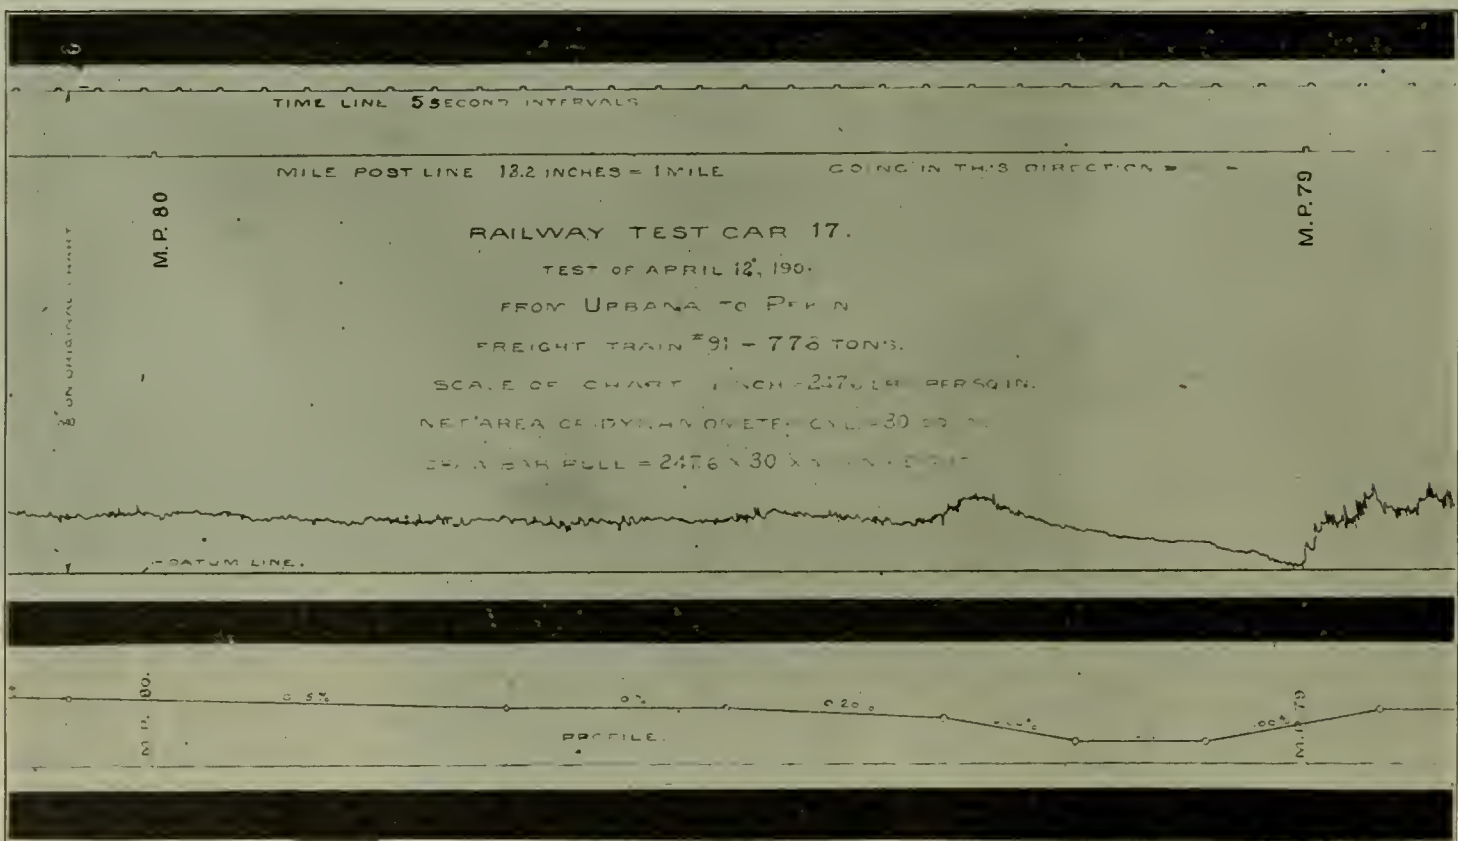 TIME LINE 5 SECOND INTERVALS
MILE POST LINE 13.2 INCHES = 1 MILE
GOING IN THIS DIRECTION
M.P. 80
M.P. 79
ON ORIGINAL CHART
RAILWAY TEST CAR 17.
TEST OF APRIL 12,
FROM URBANA TO PEKIN
FREIGHT TRAIN #91 - 778 TONS.
SCALE OF CHART 1 INCH = 247.6 LBS PER SQ IN.
NET AREA OF DYNAMOMETER CYL. = 30
DRAW BAR PULL = 247.6 X 30 X
DATUM LINE.
M.P. 80.
0%
0.20%
M.P. 79
PROFILE.